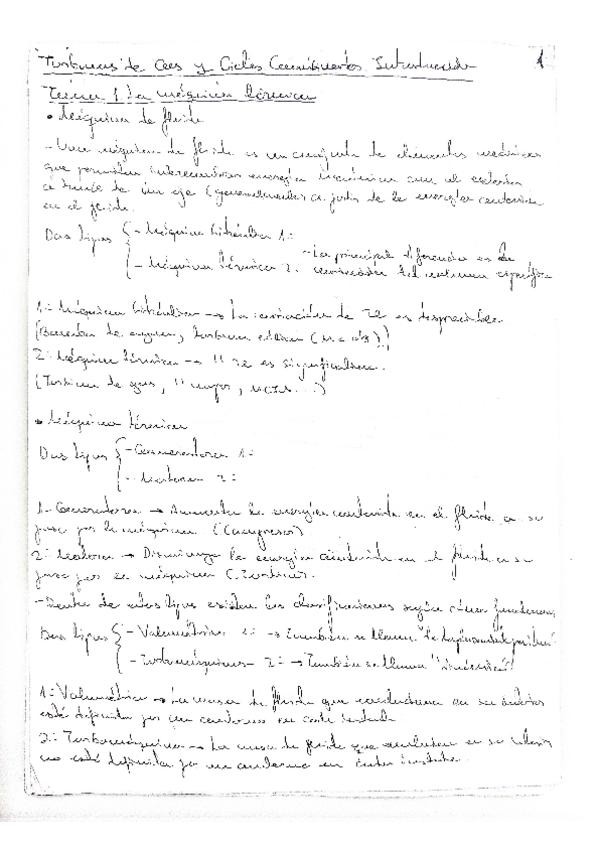 Turbinas de Gas y Ciclos Combinados Introducción 1
Tema 1 La máquina térmica
• Máquina de fluido
- Una máquina de fluido es un conjunto de elementos mecánicos
que permiten intercambiar energía mecánica con el exterior
a través de un eje (generalmente) a partir de la energía contenida
en el fluido.
Dos tipos - Máquina hidráulica 1:
- Máquina térmica 2: - La principal diferencia es la
variación del volumen específico
1:- Máquina hidráulica → La variación de es despreciable
(Bombas de agua, turbina eólica
2: Máquina térmica → " es significativa.
(Turbina de gas, " vapor, MCIA...)
• Máquina térmica
Dos tipos - Generadora 1:
- Motora 2:
1- Generadora → Aumenta la energía contenida en el fluido a su
paso por la máquina (Compresor)
2: Motora → Disminuye la energía contenida en el fluido a su
paso por la máquina (Turbina).
- Dentro de estos tipos existen las clasificaciones según cómo funcionan
Dos tipos - Volumétrica → También se llaman "de desplazamiento positivo"
- Turbomáquinas - 2: → También se llaman "dinámicas"
1: Volumétrica → La masa de fluido que evoluciona en su interior
está definida por un contorno en cada instante
2:- Turbomáquina → La masa de fluido que evoluciona en su interior
no está definida por un contorno en cada instante.